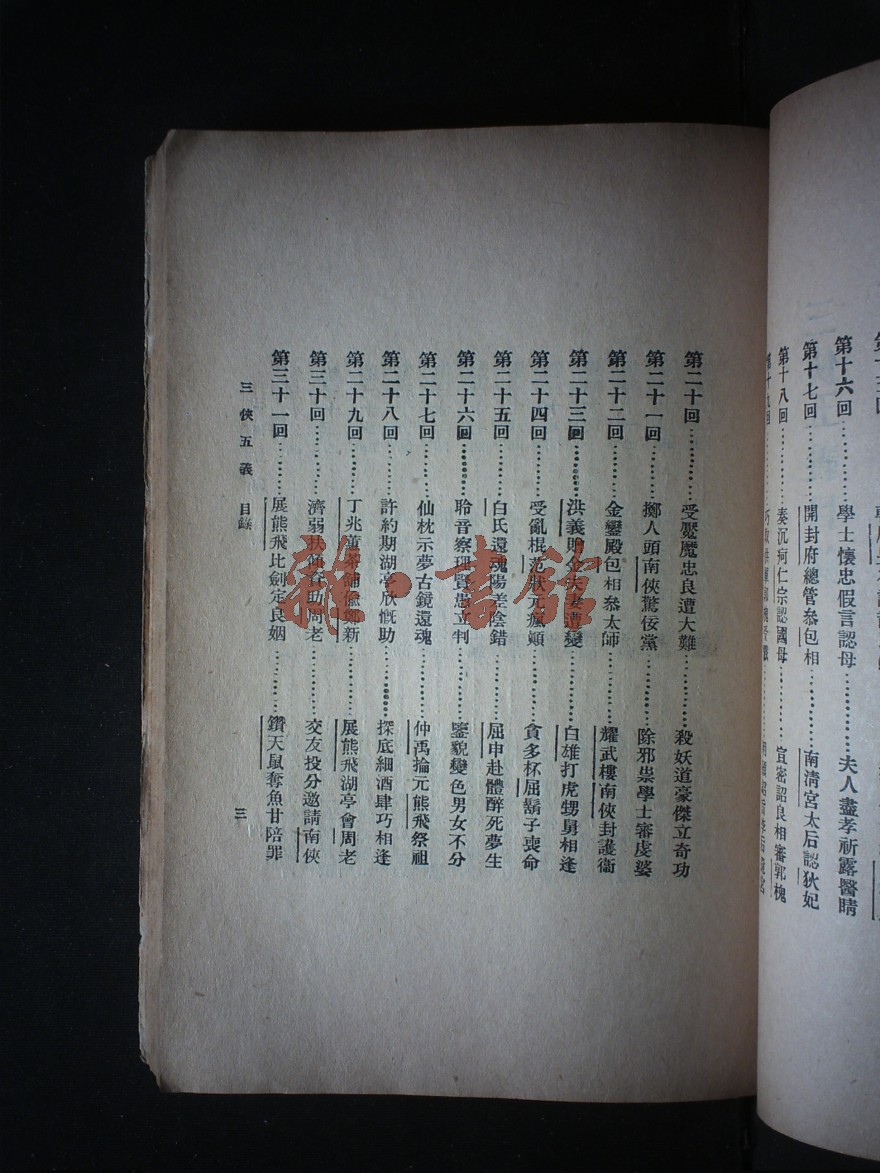 第十六回…………學士懷忠假言認母…………夫人盡孝祈露醫睛
第十七回…………開封府總管參包相…………南清宮太后認狄妃
第十八回…………奏沉疴仁宗認國母…………宣密詔良相審郭槐
第二十回…………受魘魔忠良遭大難…………殺妖道豪傑立奇功
第二十一回…………擲人頭南俠驚佞黨…………除邪祟學士審虔婆
第二十二回…………金鑾殿包相參太師…………耀武樓南俠封護衞
第二十三回…………洪義贈金夫妻遭變…………白雄打虎甥舅相逢
第二十四回…………受亂棍范狀元瘋顚…………貪多杯屈鬍子喪命
第二十五回…………白氏還魂陽差陰錯…………屈申赴體醉死夢生
第二十六回…………聆音察理賢愚立判…………鑒貌變色男女不分
第二十七回…………仙枕示夢古鏡還魂…………仲禹掄元熊飛祭祖
第二十八回…………許約期湖亭欣慨助…………探底細酒肆巧相逢
第二十九回…………丁兆蕙茶鋪偸鄭新…………展熊飛湖亭會周老
第三十回…………濟弱扶傾資助周老…………交友投分邀請南俠
第三十一回…………展熊飛比劍定良姻…………鑽天鼠奪魚甘陪罪
三俠五義 目錄
三
雜·書館